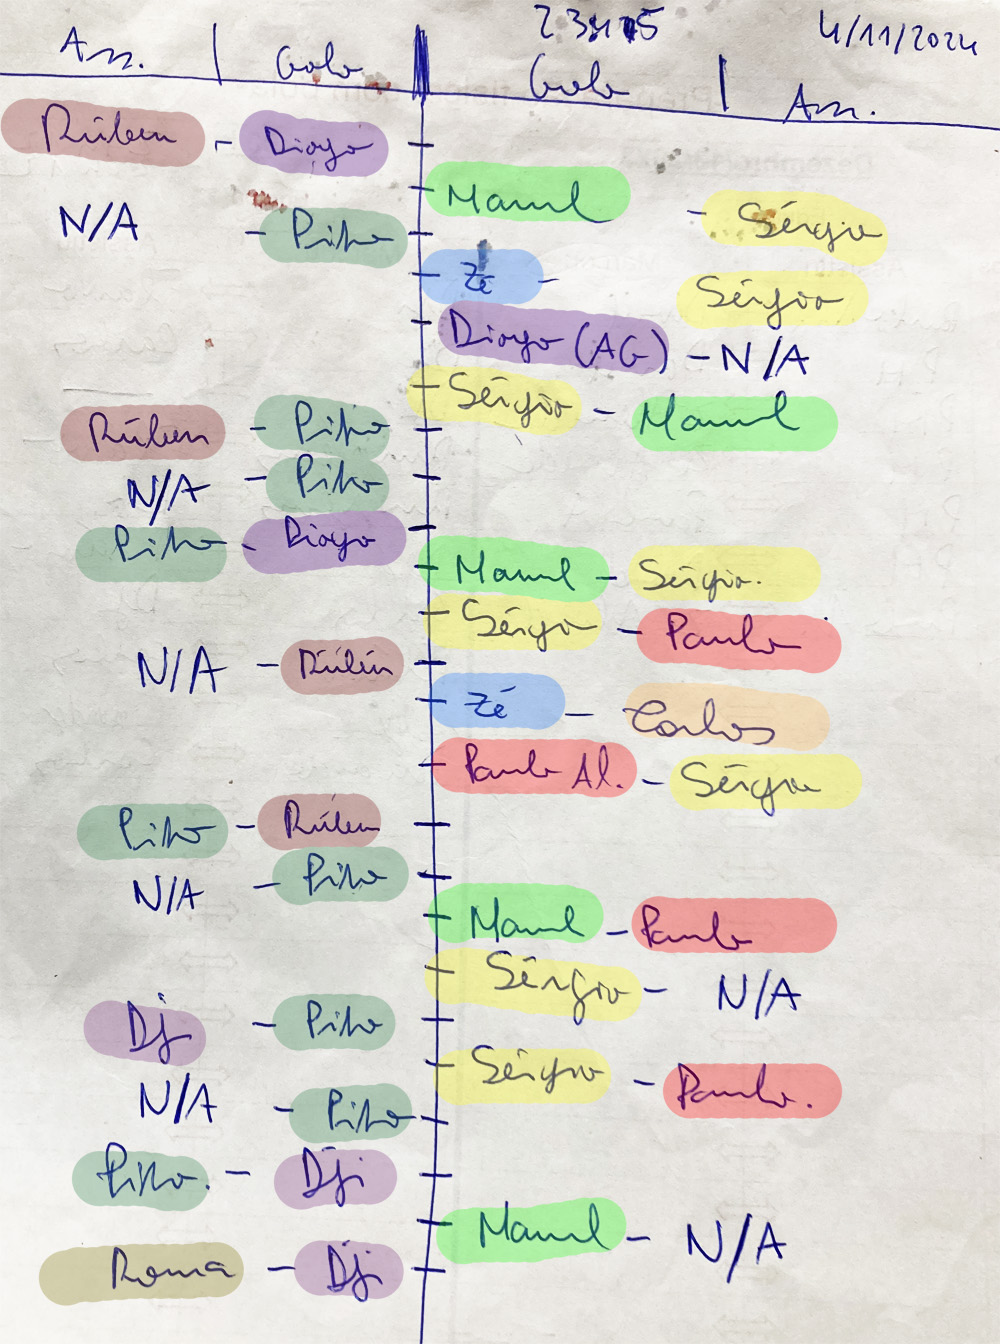 4/11/2024
Ass. | Golo Golo | Ass.
Rúben - Diogo
Manel - Sérgio
N/A - Pitho
Zé - Sérgio
Diogo (AG) - N/A
Sérgio - Manel
Rúben - Pitho
N/A - Pitho
Pitho - Diogo
Manel - Sérgio.
Sérgio - Paulo
N/A - Rúben
Zé - Carlos
Paulo Al. - Sérgio
Pitho - Rúben
N/A - Pitho
Manel - Paulo
Sérgio - N/A
Dj - Pitho
Sérgio - Paulo.
N/A - Pitho
Pitho. - Dji
Manel - N/A
Roma - Dji